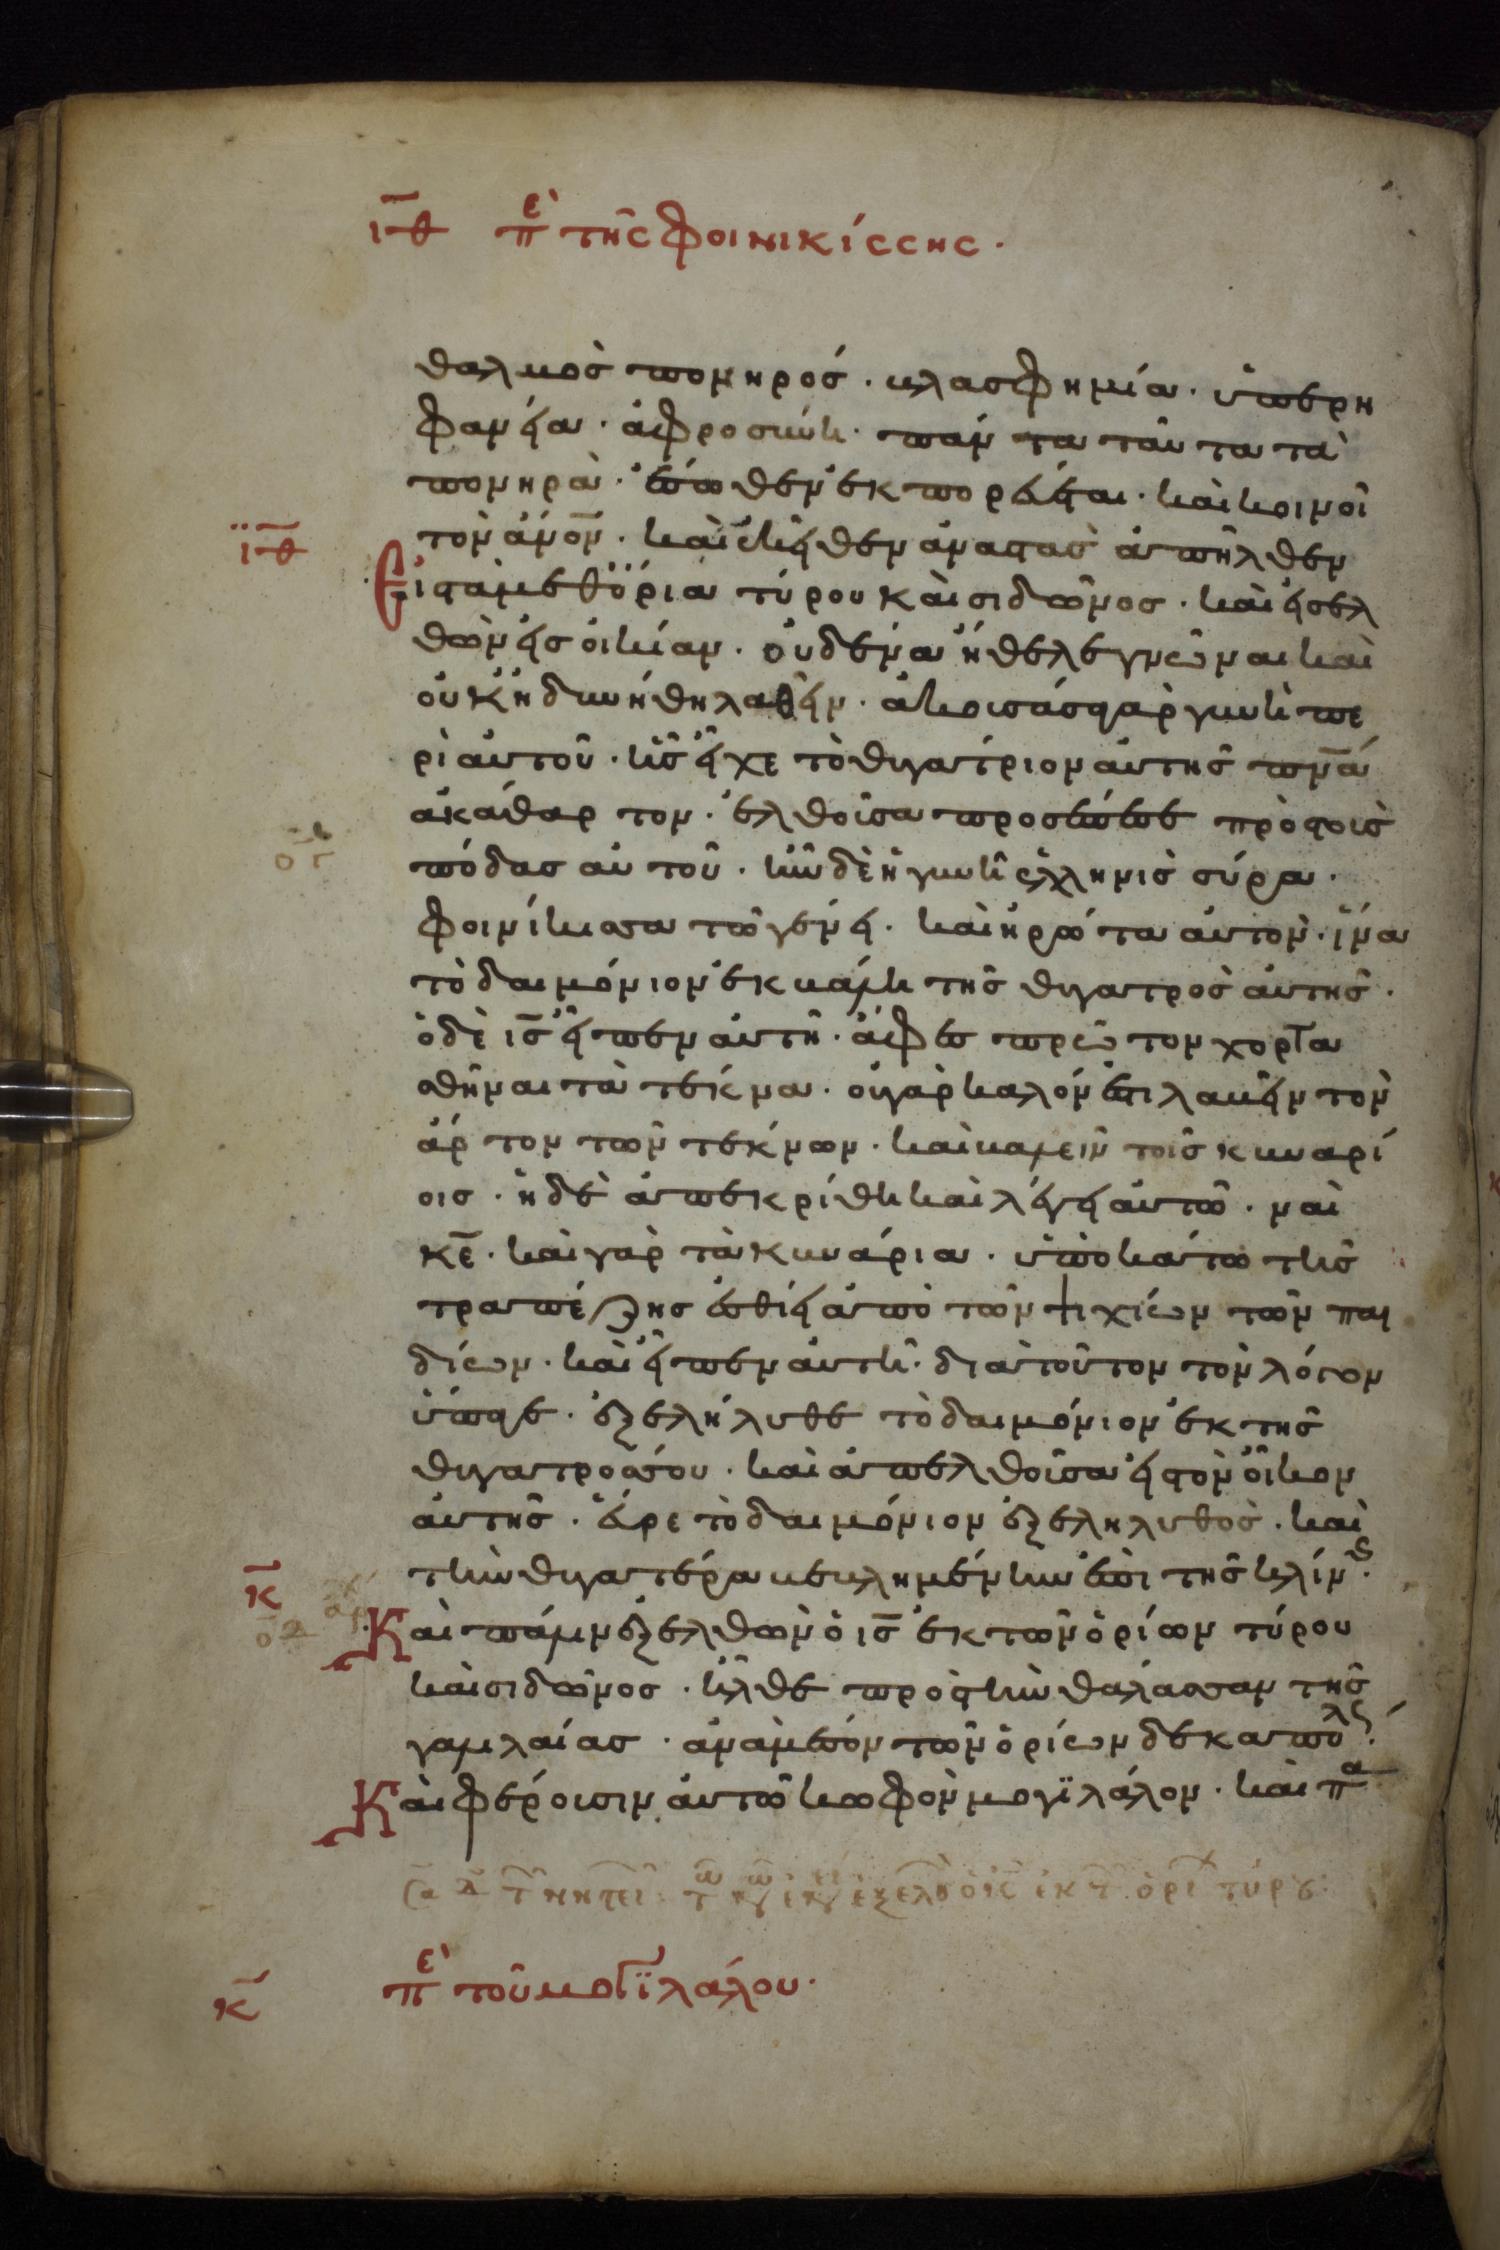 ιθ περὶ τῆς φοινικίσσης.
θαλμὸσ πονηρόσ. βλασφημία. ὑπερη
φανεία. ἀφροσύνη. πάντα ταῦτα τὰ
πονηρὰ. ἔσωθεν ἐκπορεύεται. καὶ κοινοῖ
τὸν ἄνον. καὶ ἐκεῖθεν ἀναστὰσ ἀπῆλθεν
ϊθ
Εἰς τὰ μεθόρια τύρου καὶ σιδῶνοσ. καὶ εἰσελ
θὼν εἰσ οἰκίαν. οὐδένα ἤθελε γνῶναι καὶ
οὐκ ἠδυνήθη λαθεῖν. ἀκούσασα γὰρ γυνὴ πε
ρὶ αὐτοῦ. ἧσ εἶχε τὸ θυγάτριον αὐτῆσ πνα
ἀκάθαρτον. ἐλθοῦσα προσέπεσε πρὸς τοὺσ
πόδασ αὐτοῦ. ἦν δὲ ἡ γυνὴ ἑλληνὶσ σύρα.
φοινίκισσα τῶ γένει. καὶ ἠρώτα αὐτὸν. ἵνα
τὸ δαιμόνιον ἐκβάλη τῆσ θυγατρὸσ αὐτῆσ.
ὁ δὲ ισ εἶπεν αὐτῆ. ἄφεσ πρῶτον χορτα
σθῆναι τὰ τέκνα. οὐ γὰρ καλόν ἐστι λαβεῖν τὸν
ἄρτον τῶν τέκνων. καὶ βαλεῖν τοῖσ κυναρί
οισ. ἡ δὲ ἀπεκρίθη καὶ λέγει αὐτῶ. ναὶ
κε. καὶ γὰρ τὰ κυνάρια. ὑποκάτω τῆσ
τραπέζησ ἐσθίει ἀπὸ τῶν ψιχίων τῶν παι
δίων. καὶ εἶπεν αὐτῆ. διὰ τοῦτον τὸν λόγον
ὕπαγε. ἐξελήλυθε τὸ δαιμόνιον ἐκ τῆσ
θυγατρόσ σου. καὶ ἀπελθοῦσα εἰς τὸν οἶκον
αὐτῆσ. εὗρε τὸ δαιμόνιον ἐξεληλυθὸσ. καὶ
τὴν θυγατέρα βεβλημένην ἐπὶ τῆσ κλίνης.
κ
Καὶ πάλιν ἐξελθὼν ὁ ισ ἐκ τῶν ὁρίων τύρου
καὶ σιδῶνοσ. ἦλθε πρὸς τὴν θάλασσαν τῆσ
γαλιλαίασ. ἀνὰ μέσον τῶν ὁρίων δεκαπόλεως.
Καὶ φέρουσιν αὐτῶ κωφὸν μογϊλάλον. καὶ πα
ἐξελθ ὁ ις ἐκ τ ὁρι τύρου
κ περὶ τοῦ μογϊλάλου.